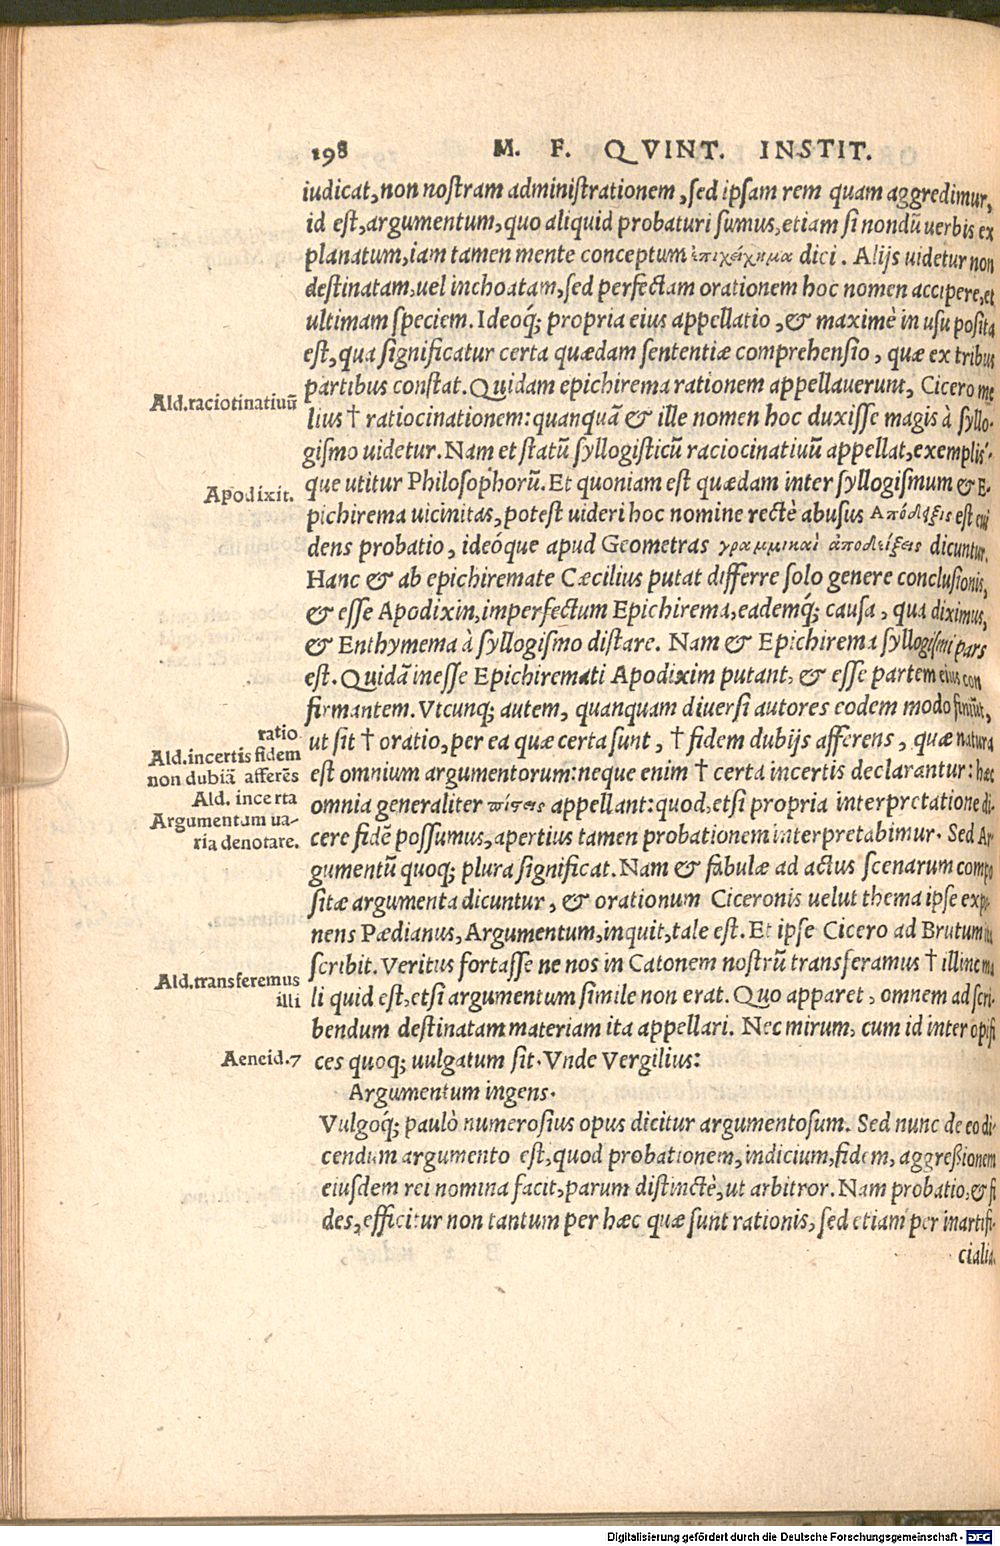 198 M. F. QVINT. INSTIT.
iudicat, non nostram administrationem, sed ipsam rem quam aggredimur,
id est, argumentum, quo aliquid probaturi sumus, etiam si nondū uerbis ex
planatum, iam tamen mente conceptum ἐπιχείρημα dici. Alijs uidetur non
destinatam, uel inchoatam, sed perfectam orationem hoc nomen accipere, et
ultimam speciem. Ideoq; propria eius appellatio, & maximè in usu posita
est, qua significatur certa quædam sententiæ comprehensio, quæ ex tribus
partibus constat. Quidam epichirema rationem appellauerunt, Cicero me
Ald. raciotinatiuū
lius † ratiocinationem: quanquā & ille nomen hoc duxisse magis à syllo-
gismo uidetur. Nam et statū syllogisticū raciocinatiuū appellat, exemplis-
que utitur Philosophorū. Et quoniam est quædam inter syllogismum & E-
Apodixit.
pichirema uicinitas, potest uideri hoc nomine rectè abusus Ἀπόδειξις est eui
dens probatio, ideóque apud Geometras γραμμικαὶ ἀποδείξεις dicuntur.
Hanc & ab epichiremate Cæcilius putat differre solo genere conclusionis,
& esse Apodixin, imperfectum Epichirema, eademq́; causa, qua diximus,
& Enthymema à syllogismo distare. Nam & Epichirema syllogismi pars
est. Quidā inesse Epichiremati Apodixim putant, & esse partem eius con
firmantem. Vtcunq; autem, quanquam diuersi autores eodem modo finiūt,
ratio
ut sit † oratio, per ea quæ certa sunt, † fidem dubijs afferens, quæ natura
Ald. incertis fidem
non dubiā afferēs
est omnium argumentorum: neque enim † certa incertis declarantur: hæc
Ald. incerta
omnia generaliter πίστεις appellant: quod, etsi propria interpretatione di-
Argumentum ua-
ria denotare.
cere fidē possumus, apertius tamen probationem interpretabimur. Sed Ar
gumentū quoq; plura significat. Nam & fabulæ ad actus scenarum compo
sitæ argumenta dicuntur, & orationum Ciceronis uelut thema ipse expo-
nens Pædianus, Argumentum, inquit, tale est. Et ipse Cicero ad Brutum ita
scribit. Veritus fortasse ne nos in Catonem nostrū transferamus † illinc ma
Ald. transferemus
illi
li quid est, etsi argumentum simile non erat. Quo apparet, omnem ad scri-
bendum destinatam materiam ita appellari. Nec mirum, cum id inter opifi
Aeneid. 7
ces quoq; uulgatum sit. Vnde Vergilius:
Argumentum ingens.
Vulgóq; paulò numerosius opus dicitur argumentosum. Sed nunc de eo di-
cendum argumento est, quod probationem, indicium, fidem, aggreßionem
eiusdem rei nomina facit, parum distinctè, ut arbitror. Nam probatio, & fi
des, efficitur non tantum per hæc quæ sunt rationis, sed etiam per inartifi-
cialia.
Digitalisierung gefördert durch die Deutsche Forschungsgemeinschaft - DFG